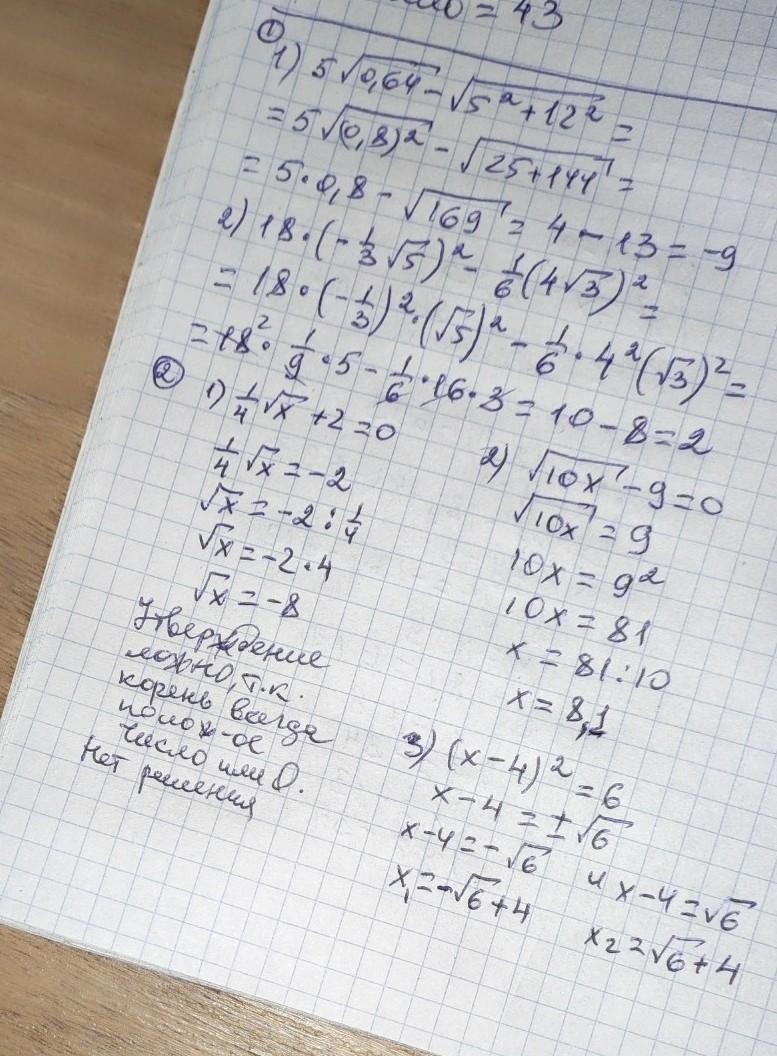 = 43
①
1) 5√0,64 - √5²+12² =
= 5√(0,8)² - √25+144 =
= 5·0,8 - √169 = 4 - 13 = -9
2) 18·(-1/3√5)² - 1/6(4√3)² =
= 18·(-1/3)²·(√5)² - 1/6·4²(√3)² =
= 18²·1/9·5 - 1/6·16·3 = 10 - 8 = 2
②
1) 1/4√x + 2 = 0
1/4√x = -2
√x = -2 : 1/4
√x = -2·4
√x = -8
Утверждение
ложно, т.к.
корень всегда
полож-ое
число или 0.
Нет решения
2) √10x - 9 = 0
√10x = 9
10x = 9²
10x = 81
x = 81:10
x = 8,1
3) (x-4)² = 6
x-4 = ±√6
x-4 = -√6 и x-4 = √6
x₁ = -√6+4 x₂ = √6+4